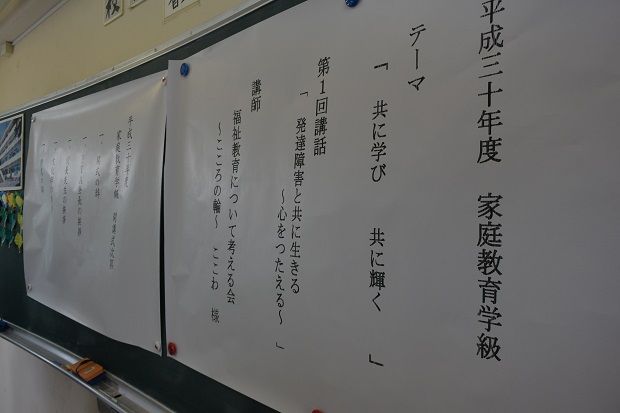 平成三十年度　家庭教育学級
テーマ
「　共に学び　　共に輝く　　」
第１回講話
「　発達障害と共に生きる
～心をつたえる～　」
講師
福祉教育について考える会
～こころの輪～　ここわ　様
平成三十年度
家庭教育学級　開講式次第